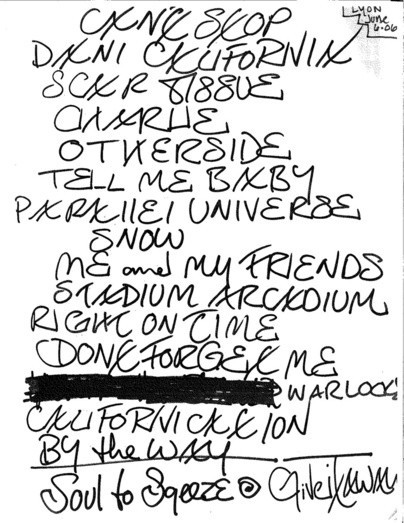 LYON
June
6.06
CAN'T STOP
DANI CALIFORNIA
SCAR TISSUE
CHARLIE
OTHERSIDE
TELL ME BABY
PARALLEL UNIVERSE
SNOW
ME and MY FRIENDS
STADIUM ARCADIUM
RIGHT ON TIME
DONT FORGET ME
WARLOCKS
CALIFORNICATION
BY the WAY
Soul to Sqeeze Give it AWAY